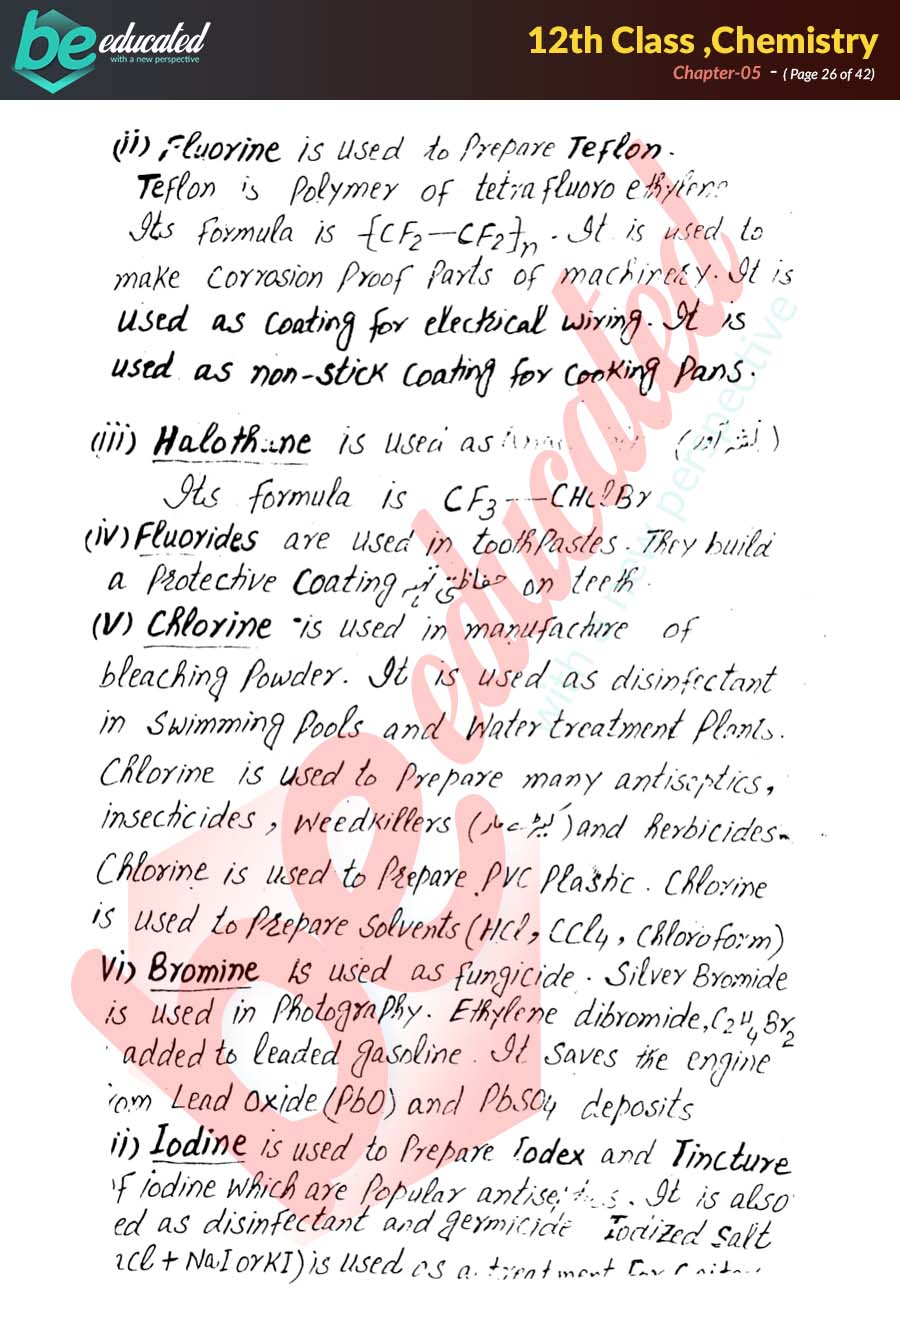 be educated
with a new perspective
12th Class ,Chemistry
Chapter-05 - ( Page 26 of 42)
(ii) Fluorine is used to Prepare Teflon.
Teflon is Polymer of tetrafluoro ethylene
Its formula is {CF2—CF2}n . It is used to
make Corrosion Proof Parts of machinery. It is
used as coating for electrical wiring. It is
used as non-stick coating for cooking Pans.
(iii) Halothane is used as (نشہ آور)
Its formula is CF3—CHClBr
(iv) Fluorides are used in toothPastes. They build
a Protective Coating حفاظتی تہہ on teeth.
(v) Chlorine is used in manufacture of
bleaching Powder. It is used as disinfectant
in Swimming Pools and Water treatment Plants.
Chlorine is used to Prepare many antiseptics,
insecticides, Weedkillers ( ) and herbicides.
Chlorine is used to Prepare PVC Plastic. Chlorine
is used to Prepare Solvents (HCl, CCl4, Chloroform)
Vi) Bromine is used as fungicide. Silver Bromide
is used in Photography. Ethylene dibromide, C2H4Br2
added to leaded gasoline. It saves the engine
rom Lead Oxide (PbO) and PbSO4 deposits
ii) Iodine is used to Prepare Iodex and Tincture
f iodine which are Popular antiseptics. It is also
ed as disinfectant and germicide Iodized Salt
Cl + NaI or KI) is used as a treatment For
be educated
with a new perspective